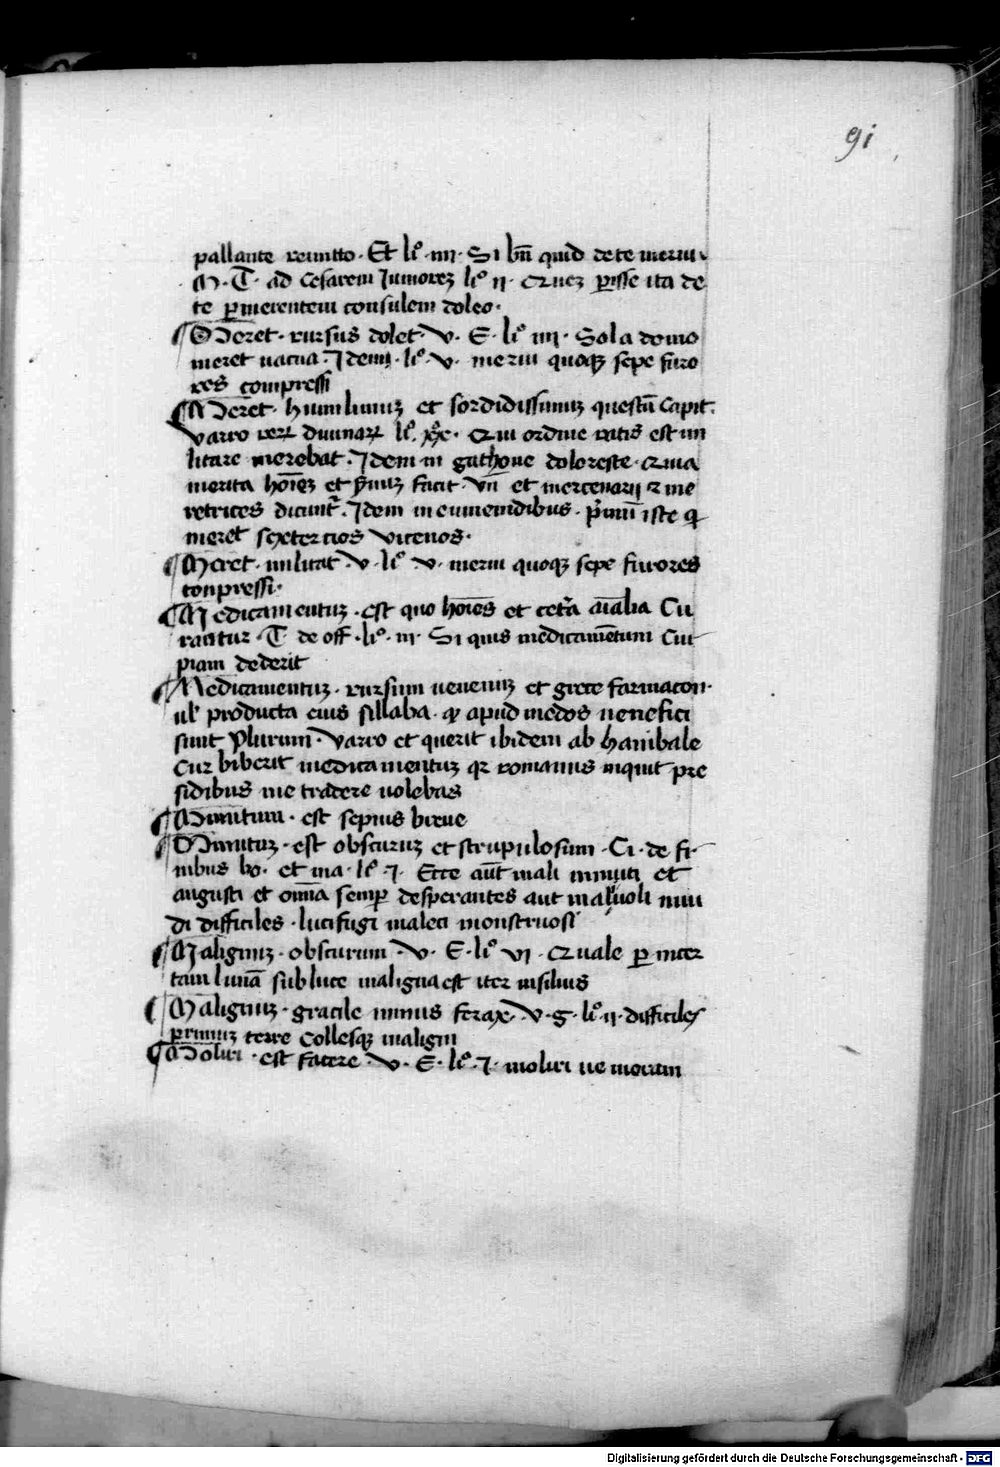 91
pallante reuicto · Et li° · iiii · Si bn̄ quid de te merui ·
M · T · ad Cesarem Iuniorez li° ii · Quez pisse ita de
te pmerentem consulem doleo ·
Meret · rursus dolet · V · E · li° iiii · Sola domo
meret uacua · Idem · li° · v · merui quoqȝ sepe furo
res compressi
Meret · humilimuȝ et sordidissimuȝ questū Capit ·
Varro reꝝ diuinaꝝ li° · xx · Qui ordine ratis est mi
litare merebat · Idem in gathone doloreste · Quia
merita hōīeȝ et pimuȝ facit · Vn̄ et mercenarij et me
retrices dicunt̄ · Idem in eumenidibus · pimū iste q
meret sextercios vicenos ·
Meret · militat V · li° · v · merui quoqȝ sepe furores
conpressi ·
Medicamentuȝ · est quo hōīes et cet̄a aīalia Cu
rantur · T · de off · li° · iii · Si quis medicamētum Cui
piam dederit
Medicamentuȝ · rursum uenenuȝ et grece farmacon ·
ul' producta eius sillaba · qꝫ apud medos uenefici
sunt plurimi · Varro et querit ibidem ab hanibale
Cur biberit medicamentuȝ qꝛ romanis inquit pre
sidibus me tradere uolebas
Minutum · est sepius breue
Minutuȝ · est obscuruȝ et scrupulosum · Ci · de fi
nibus bo · et ma · li° · i · Ecce aūt mali minuti et
angusti et omīa semp desperantes aut maliuoli inui
di difficiles · lucifugi maleci monstruosi
Malignuȝ · obscurum · V · E · li° vi · Quale p incer
tam lunā sub luce maligna est iter insiluis
Malignuȝ · gracile minus ferax · V · g · li° · ii · difficiles
primuȝ terre Collesqȝ maligni
Moliri · est facere · V · E · li° · i · moliri ue moram
Digitalisierung gefördert durch die Deutsche Forschungsgemeinschaft - DFG